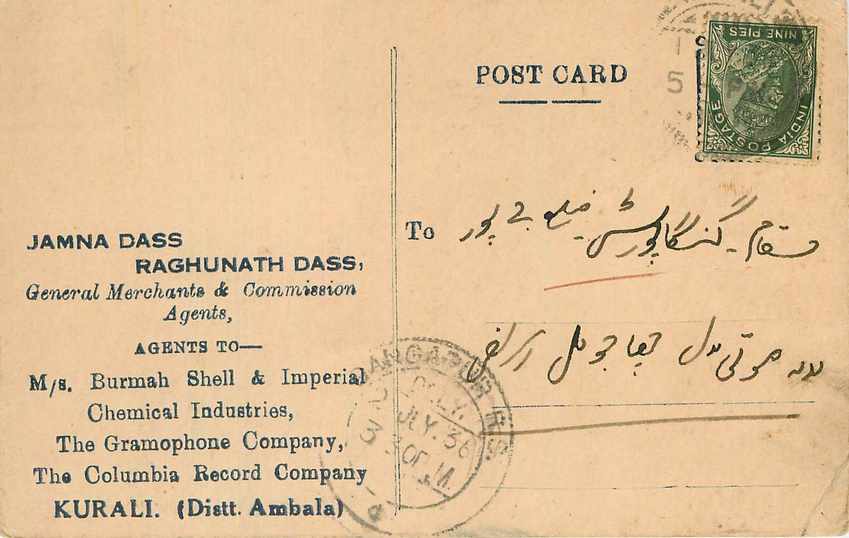 POST CARD
NINE PIES
INDIA POSTAGE
5
JAMNA DASS
RAGHUNATH DASS,
General Merchants & Commission
Agents,
AGENTS TO—
M/s. Burmah Shell & Imperial
Chemical Industries,
The Gramophone Company,
The Columbia Record Company
KURALI. (Distt. Ambala)
To
مقام۔ گنگاپور سٹی ضلع جے پور
موتی لال
GANGAPUR R.S.
JLY. 36